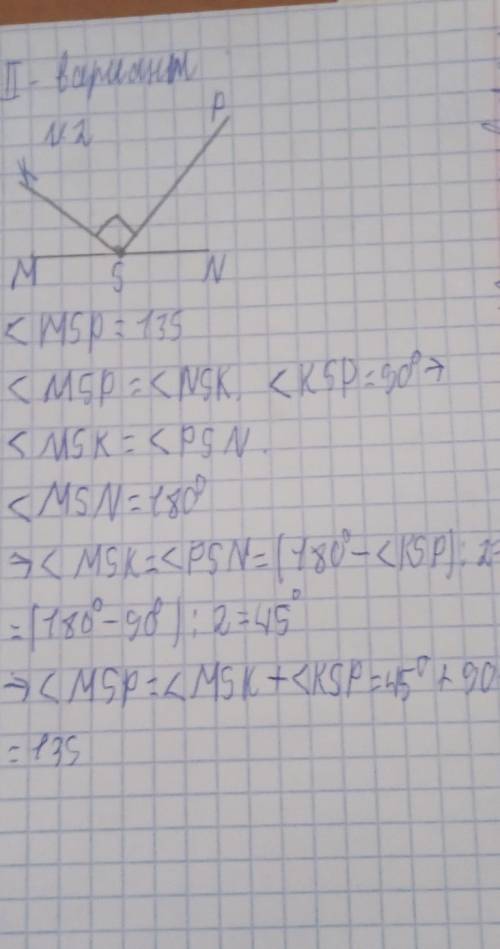 II - вариант
P
№2
K
M S N
< MSP = 135
< MSP = < NSK. < KSP = 90° →
< MSK = < PSN.
< MSN = 180°
→ < MSK = < PSN = (180° - < KSP) : 2 =
= (180° - 90°) : 2 = 45°
→ < MSP = < MSK + < KSP = 45° + 90
= 135